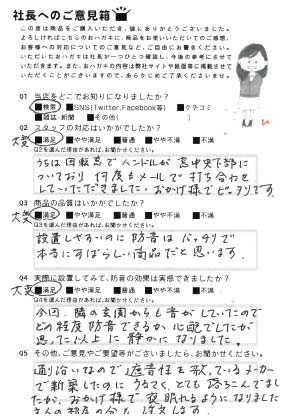 社長へのご意見箱
この度は商品をご購入いただき、誠にありがとうございました。
よろしければこちらのおハガキに、商品をお使いいただいてのご感想、
お客様への対応についてのご意見など、ご自由にお書きください。
いただいたおハガキは社長が一つひとつ確認し、今後の参考にさせて
いただきます。また、おハガキの内容は弊社サイトや紙面等に掲載させて
いただくことがございますので、あらかじめご了承くださいませ。
Q1 当店をどこでお知りになりましたか?
■検索 ■SNS(Twitter,Facebook等) ■クチコミ
■雑誌・新聞 ■その他( )
Q2 スタッフの対応はいかがでしたか?
大変 ■満足 ■やや満足 ■普通 ■やや不満 ■不満
Q2を選んだ理由があれば、お聞かせください。
うちは回転窓でハンドルが窓中央下部に
ついており 何度もメールで打ち合わせ
していただきました。おかげ様でピッタリです。
Q3 商品の品質はいかがでしたか?
大変 ■満足 ■やや満足 ■普通 ■やや不満 ■不満
Q3を選んだ理由があれば、お聞かせください。
設置しやすいのに防音は バッチリで
本当にすばらしい商品だと思います。
Q4 実際に設置してみて、防音の効果は実感できましたか?
大変 ■満足 ■やや満足 ■普通 ■やや不満 ■不満
Q4を選んだ理由があれば、お聞かせください。
今回、隣の玄関からも音がしていたので
どの程度 防音できるか 心配でしたが
思った以上に 静かになりました。
Q5 その他、ご意見やご要望等がございましたら、お聞かせください。
通り沿いなので遮音性を歌っているメーカー
で新築したのに うるさく、とても 落ちこんでました
が、おかげ様で 夜 眠れるようになりました